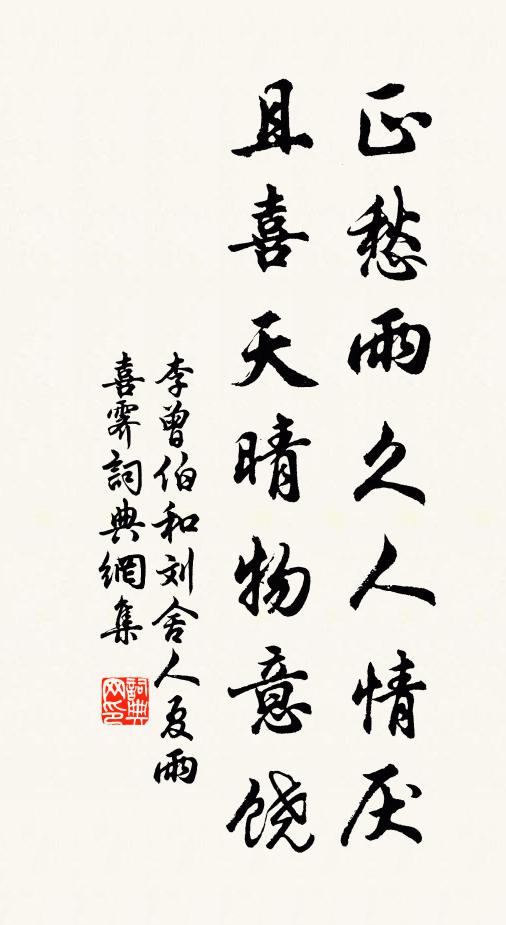 正愁雨久人情厌
且喜天晴物意饶
李曾伯和刘舍人夏雨
喜霁詞典網集
詞典网印